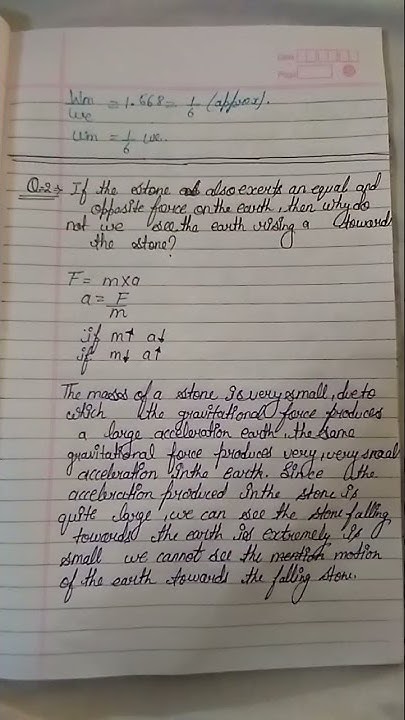 Date
Page
Wm/We = 1.568 = 1/6 (approx).
Wm = 1/6 We.
Q-2 → If the stone also exerts an equal and
opposite force on the earth, then why do
not we see the earth rising a toward
the stone?
F = m×a
a = F/m
if m↑ a↓
if m↓ a↑
The masses of a stone is very small, due to
which the gravitational force produces
a large acceleration earth, the same
gravitational force produces very, very small
acceleration in the Earth. Since the
acceleration produced in the stone is
quite large, we can see the stone falling
towards the earth is extremely is
small we cannot see the mention motion
of the earth towards the falling stone.